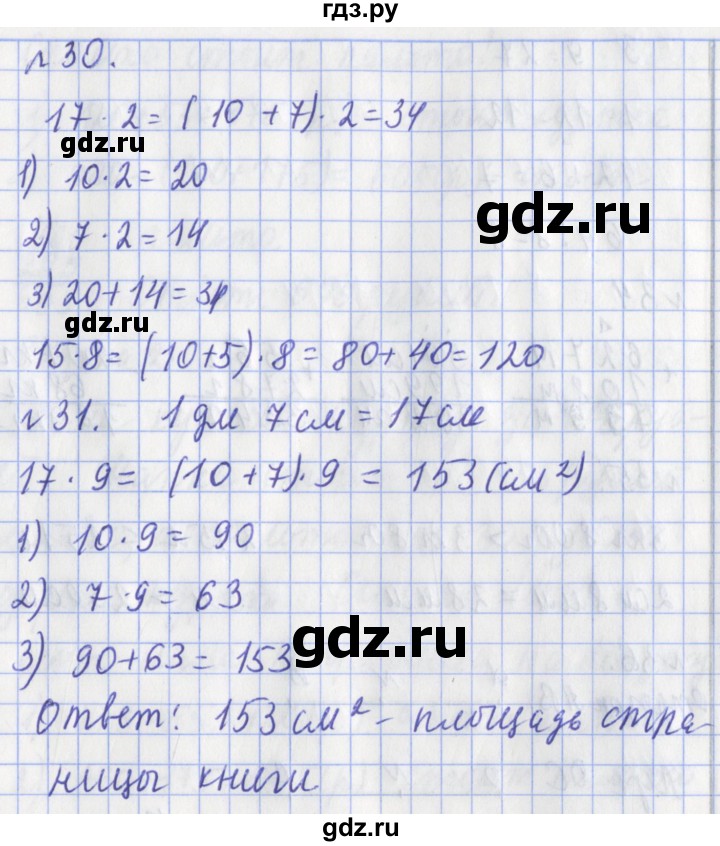 гдз.ру
№30.
17 · 2 = (10 + 7) · 2 = 34
gdz.ru
1) 10 · 2 = 20
gdz.ru
2) 7 · 2 = 14
3) 20 + 14 = 34
gdz.ru
15 · 8 = (10+5) · 8 = 80 + 40 = 120
№31. 1 дм 7 см = 17 см
17 · 9 = (10 + 7) · 9 = 153 (см²)
1) 10 · 9 = 90
2) 7 · 9 = 63
gdz.ru
3) 90 + 63 = 153
Ответ: 153 см² – площадь стра-
ницы книги
gdz.ru